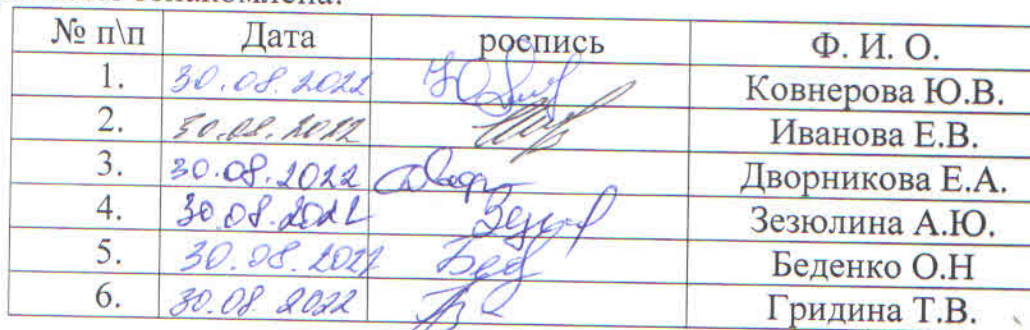 ознакомлена:
№ п\п Дата роспись Ф. И. О.
1. 30.08.2022 Ковнерова Ю.В.
2. 30.08.2022 Иванова Е.В.
3. 30.08.2022 Дворникова Е.А.
4. 30.08.2022 Зезюлина А.Ю.
5. 30.08.2022 Беденко О.Н
6. 30.08.2022 Гридина Т.В.